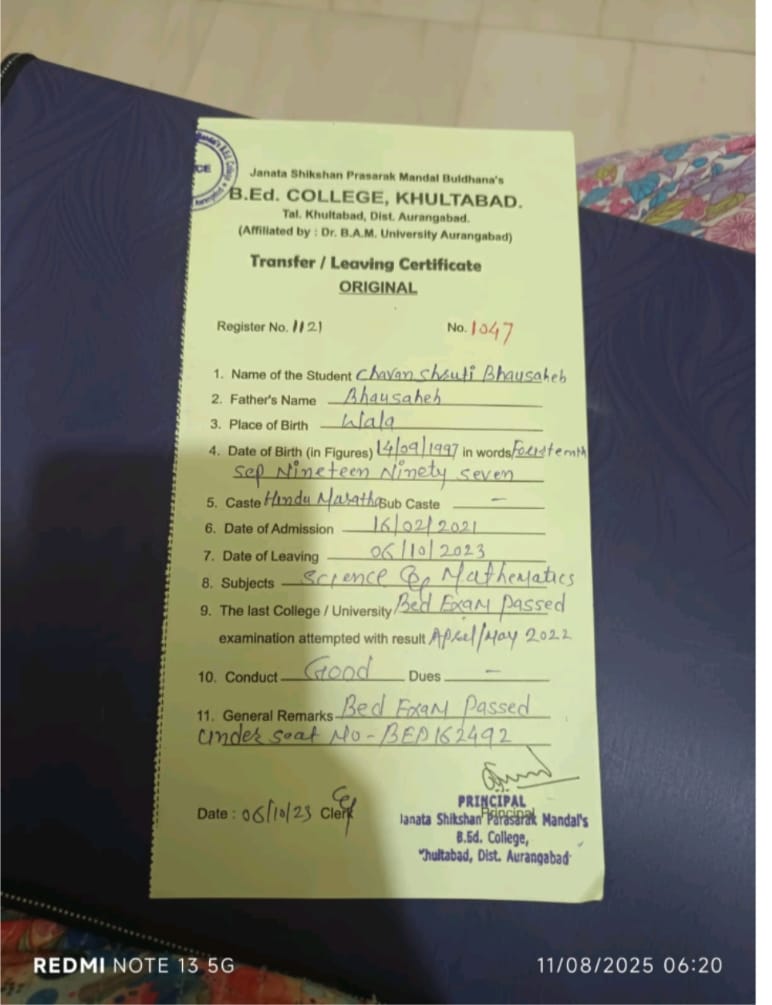 Janata Shikshan Prasarak Mandal Buldhana's
B.Ed. COLLEGE, KHULTABAD.
Tal. Khultabad, Dist. Aurangabad.
(Affiliated by : Dr. B.A.M. University Aurangabad)
Transfer / Leaving Certificate
ORIGINAL
Register No. 1121 No. 1047
1. Name of the Student Chavan Shruti Bhausaheb
2. Father's Name Bhausaheb
3. Place of Birth Wala
4. Date of Birth (in Figures) 14/09/1997 in words Fourteenth
Sep Nineteen Ninety Seven
5. Caste Hindu Maratha Sub Caste —
6. Date of Admission 16/02/2021
7. Date of Leaving 06/10/2023
8. Subjects Science & Mathematics
9. The last College / University Bed Exam Passed
examination attempted with result April/May 2022
10. Conduct Good Dues —
11. General Remarks Bed Exam Passed
Under seat No - BED162492
Date : 06/10/23 Clerk
PRINCIPAL
Principal
Janata Shikshan Parasarak Mandal's
B.Ed. College,
Khultabad, Dist. Aurangabad
REDMI NOTE 13 5G 11/08/2025 06:20